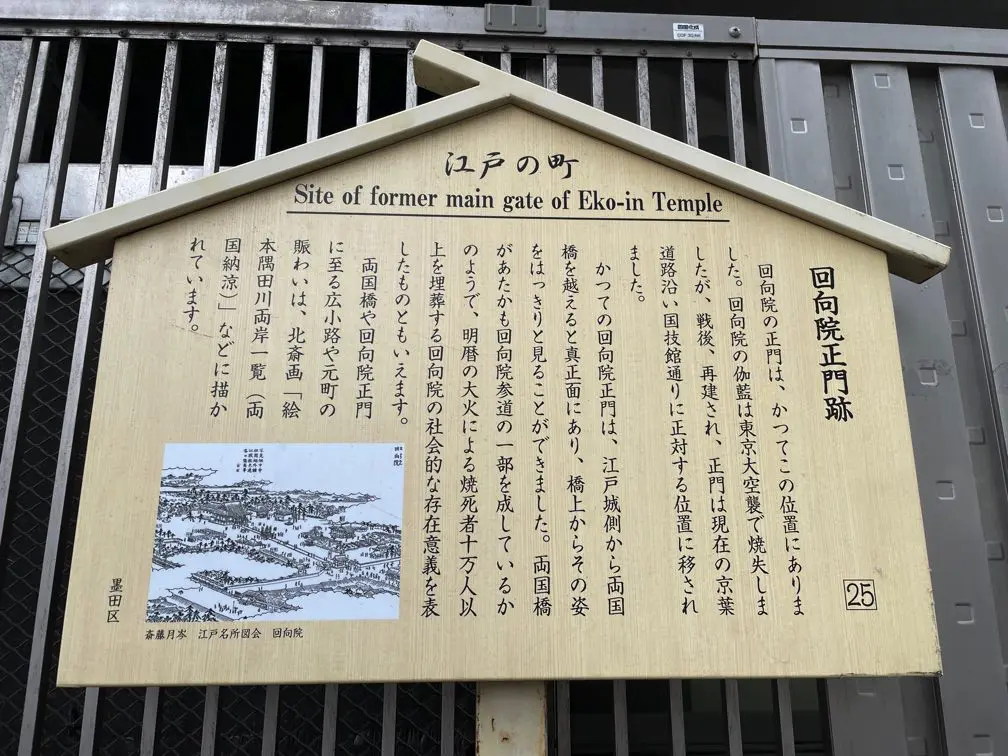 江戸の町
Site of former main gate of Eko-in Temple
回向院正門跡
25
回向院の正門は、かつてこの位置にありま
した。回向院の伽藍は東京大空襲で焼失しま
したが、戦後、再建され、正門は現在の京葉
道路沿い国技館通りに正対する位置に移され
ました。
かつての回向院正門は、江戸城側から両国
橋を越えると真正面にあり、橋上からその姿
をはっきりと見ることができました。両国橋
があたかも回向院参道の一部を成しているか
のようで、明暦の大火による焼死者十万人以
上を埋葬する回向院の社会的な存在意義を表
したものともいえます。
両国橋や回向院正門
に至る広小路や元町の
賑わいは、北斎画「絵
本隅田川両岸一覧（両
国納涼）」などに描か
れています。
回向院
斎藤月岑 江戸名所図会 回向院
墨田区